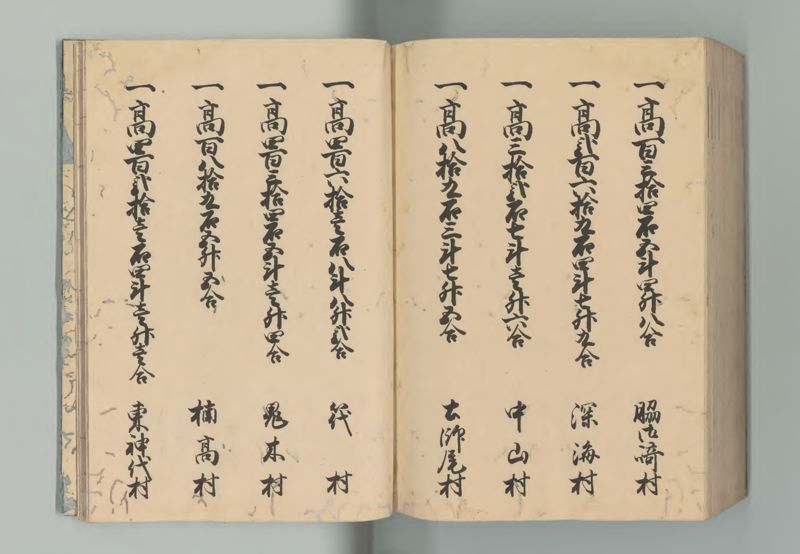 一高百三拾四石五斗四升八合 脇御崎村
一高弐百六拾九石四斗七升九合 深海村
一高三拾弐石七斗壱升六合 中山村
一高八拾九石三斗七升五合 土師尾村
一高四百六拾壱石八斗八升弐合 筏村
一高四百三拾四石五斗壱升四合 鬼木村
一高百八拾九石五升五合 楠高村
一高四百弐拾壱石四斗壱升壱合 東神代村